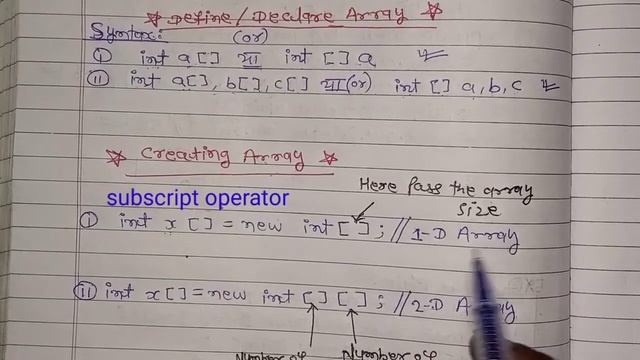 ☆ Define/Declare Array ☆
Syntax: (or)
(i) int a[] या int []a
(ii) int a[], b[], c[] या (or) int [] a, b, c
☆ Creating Array ☆
subscript operator
Here pass the array
size
(i) int x[] = new int[]; // 1-D Array
(ii) int x[] = new int [][]; // 2-D Array
Number of Number of